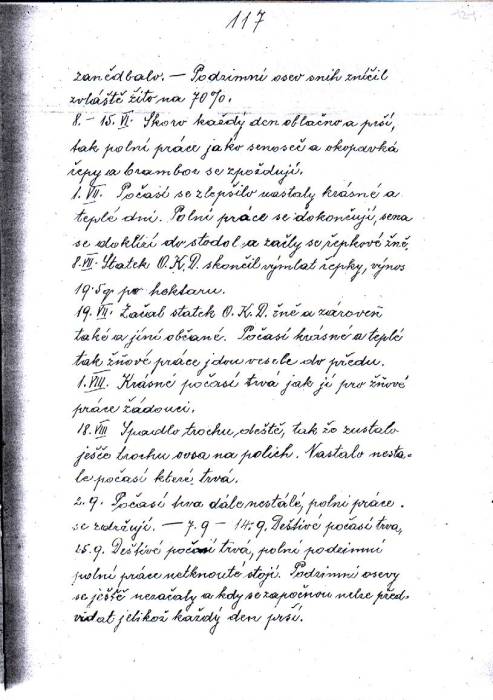 117
zanědbalo. — Podzimní osev snih zničil
zvláště žito na 70%.
8. – 15. VI. Skoro každý den oblačno a prší,
tak polní práce jako senoseč a okopavka
řepy a brambor se zpožďují.
1. VII. Počasí se zlepšilo nastaly krásné a
teplé dni. Polní práce se dokončují, sena
se doklízí do stodol a začly se řepkové žně.
8. VII. Statek O.K.D. skončil výmlat řepky, výnos
19.5q po hektaru.
19. VII. Začal statek O.K.D. žně a zároveň
také a jiní občané. Počasí krásné a teplé
tak žňové práce jdou vesele do předu.
1. VIII. Krásné počasí trvá jak je pro žňové
práce žádouci.
18. VIII Spadlo trochu deště, tak že zustalo
ješče trochu ovsa na polich. Nastalo nesta-
le počasí které trvá.
2. 9. Počasí trva dále nestálé, polní práce
se zdržují. — 7. 9 – 14. 9. Deštivé počasí trva,
25. 9. Deštivé počasí trvá, polní podzimní
polní práce netknouté stojí. Podzimní osevy
se ještě nezačaly a kdy se započnou nelze před-
vídat jelikož každý den prší.